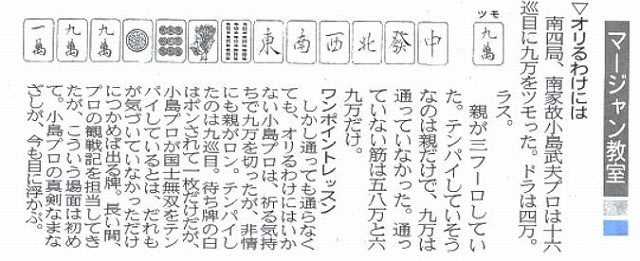 マージャン教室
▽オリるわけには
南四局、南家故小島武夫プロは十六
巡目に九万をツモった。ドラは四万。
ラス。
ツモ
九萬
一萬 九萬 九萬 東 南 西 北 發 中
親が三フーロしてい
た。テンパイしていそう
なのは親だけで、九万は
通っていなかった。通っ
ていない筋は五八万と六
九万だけ。
ワンポイントレッスン
しかし通っても通らなく
ても、オリるわけにはいか
ない小島プロは、祈る気持
ちで九万を切ったが、非情
にも親がロン。テンパイし
たのは九巡目。待ち牌の白
はポンされて一枚だけだが、
小島プロが国士無双をテン
パイしているとは、だれも
が気づいていなかっただけ
につかめば出る牌。長い間、
プロの観戦記を担当してき
たが、こういう場面は初め
て。小島プロの真剣なまな
ざしが、今も目に浮かぶ。